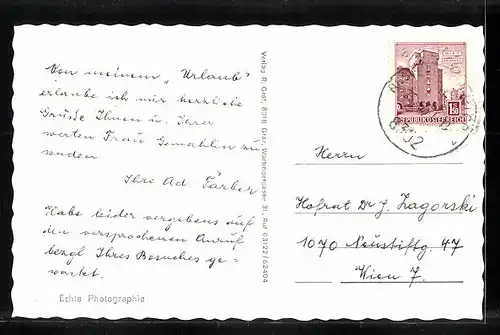 Von meinem „Urlaub"
erlaube ich mir herzliche
Grüße Ihnen u. Ihrer
werten Frau Gemahlin zu
senden
Ihre Ad. Färber
Habe leider vergebens auf
den versprochenen Anruf
bezgl Ihres Besuches ge-
wartet.
Echte Photographie
Verlag R. Graf, 8010 Graz, Wartingergasse 31, Ruf 63122/62404
REPUBLIK ÖSTERREICH
1.50
Herrn
Hofrat Dr J. Zagorski
1070 Neustiftg. 47
Wien 7.